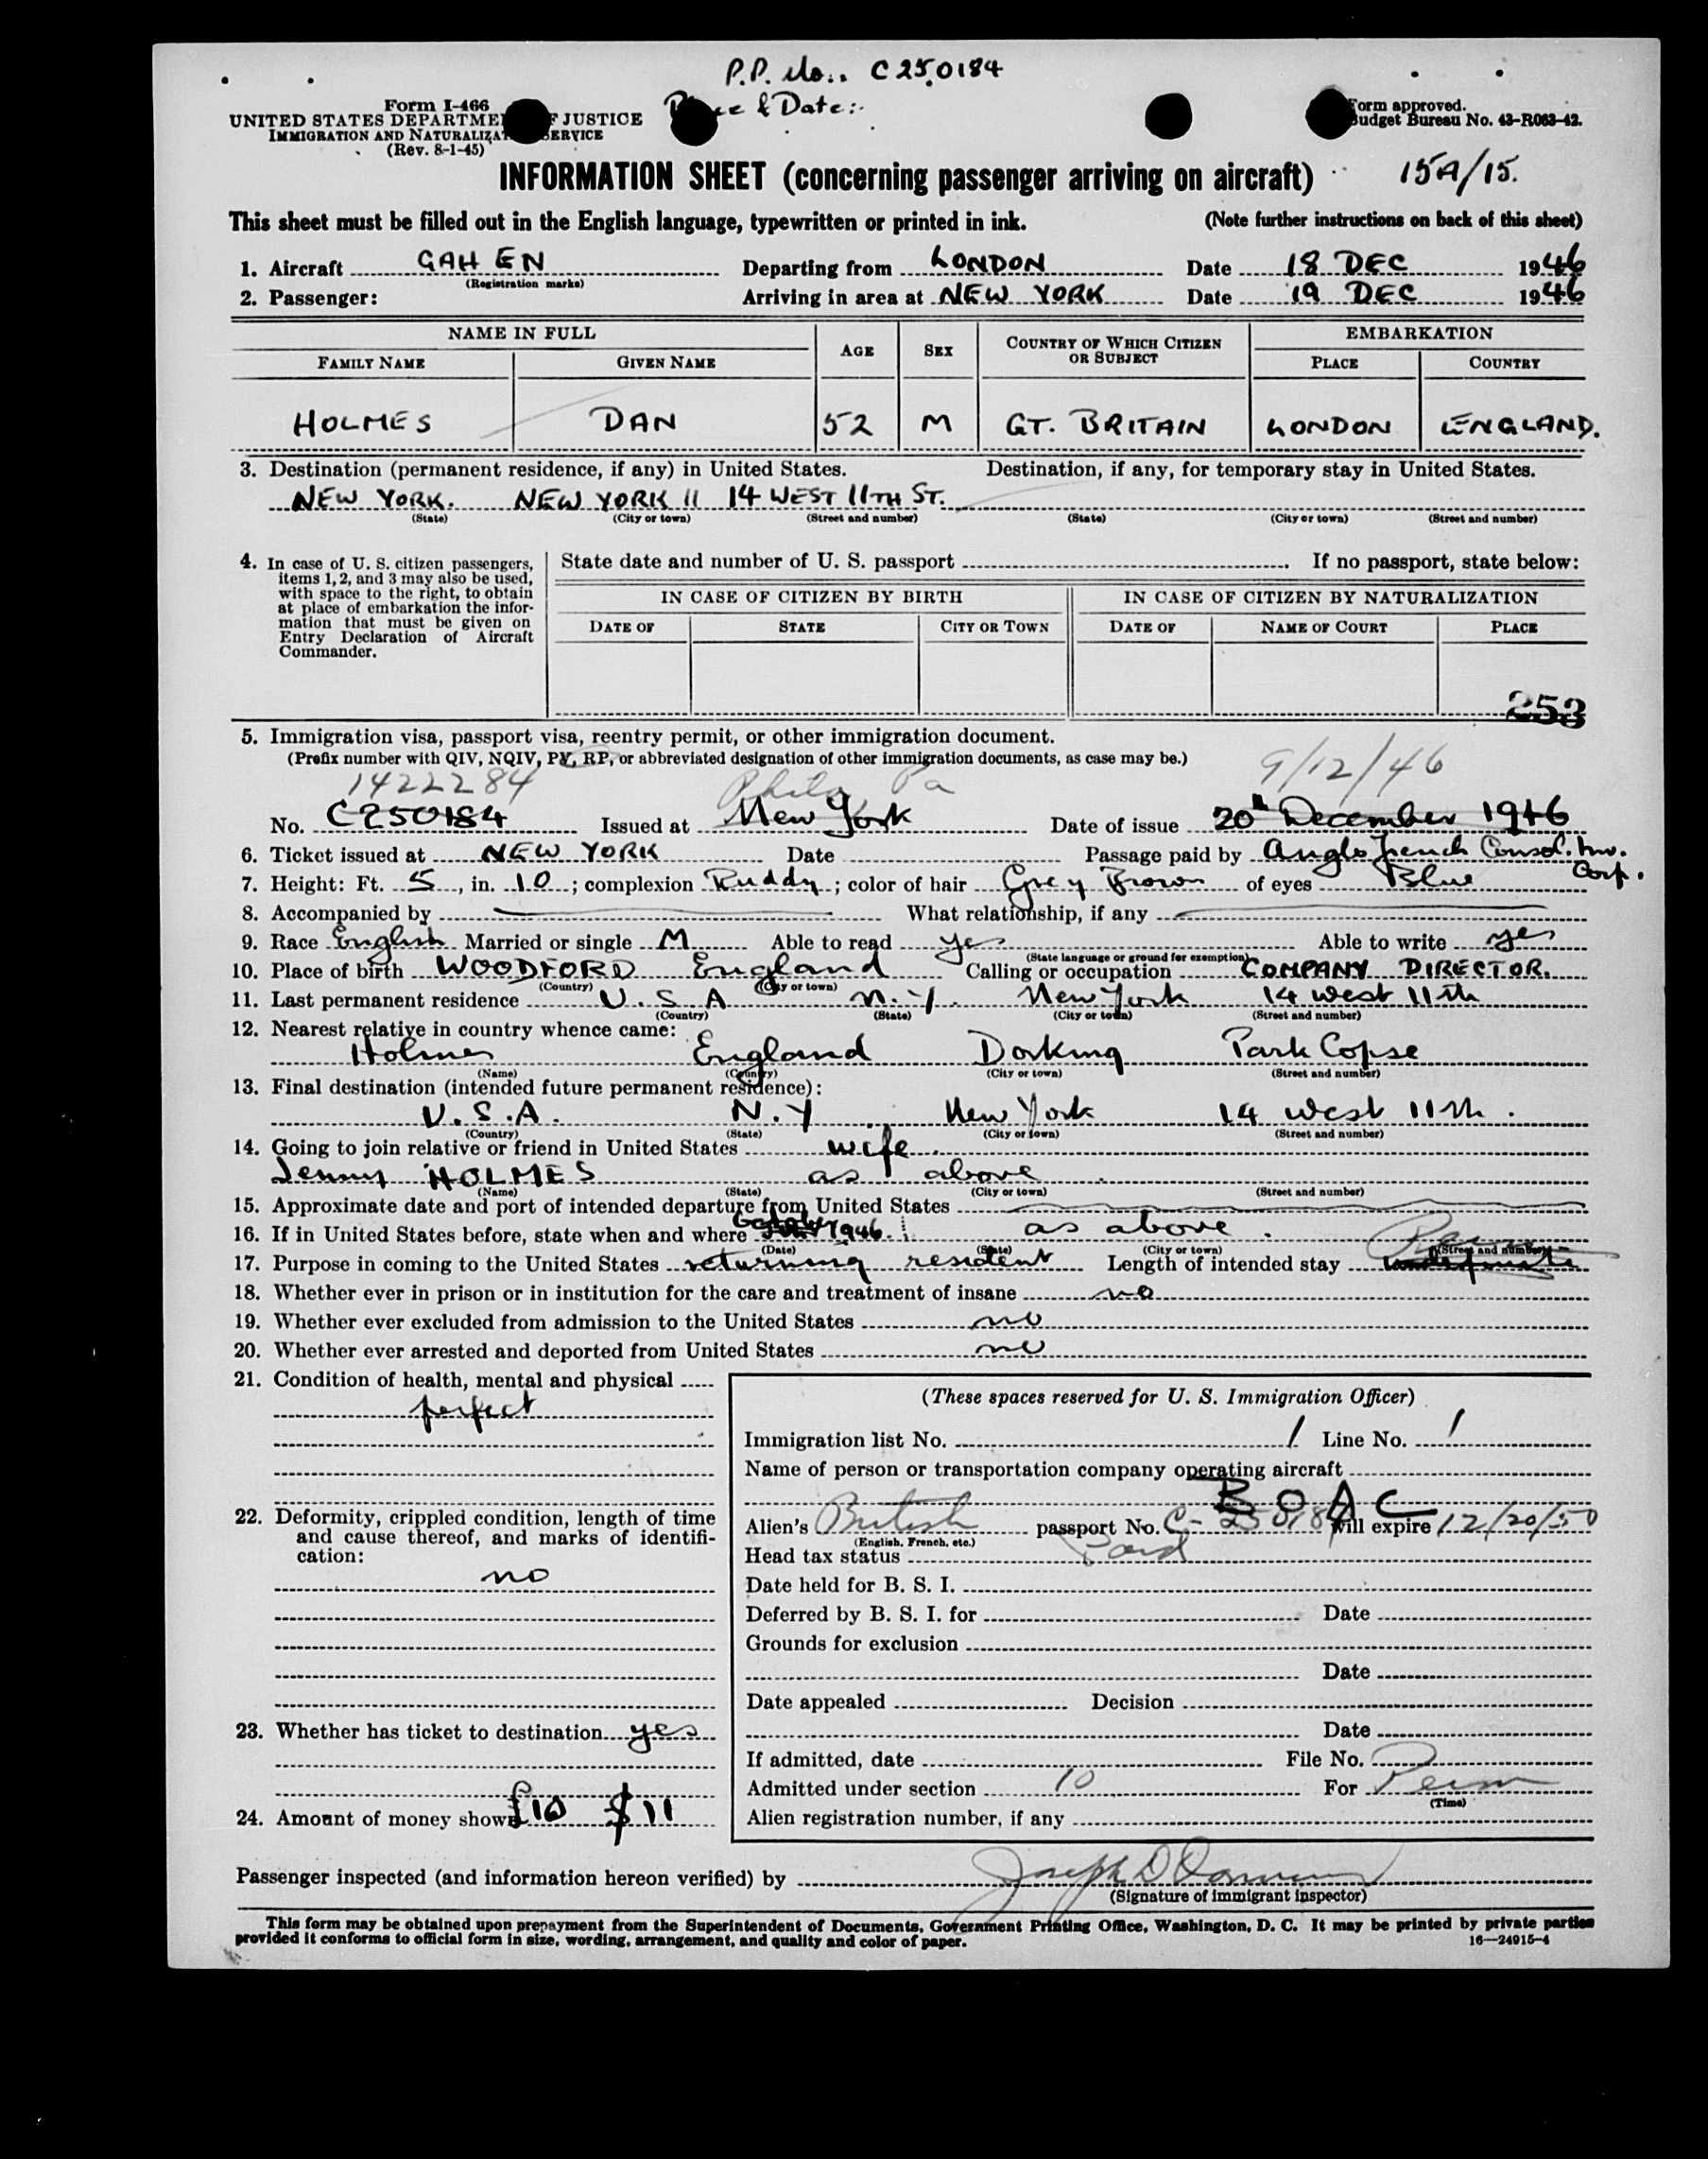 P.P. No.. C250184
Form I-466
UNITED STATES DEPARTME F JUSTICE
IMMIGRATION AND NATURALIZAT SERVICE
(Rev. 8-1-45)
& Date:-
Form approved.
Budget Bureau No. 43-R063-42.
INFORMATION SHEET (concerning passenger arriving on aircraft) 15A/15.
This sheet must be filled out in the English language, typewritten or printed in ink. (Note further instructions on back of this sheet)
1. Aircraft GAH EN Departing from LONDON Date 18 DEC 1946
(Registration marks)
2. Passenger: Arriving in area at NEW YORK Date 19 DEC 1946
NAME IN FULL AGE SEX COUNTRY OF WHICH CITIZEN OR SUBJECT EMBARKATION
FAMILY NAME GIVEN NAME PLACE COUNTRY
HOLMES DAN 52 M GT. BRITAIN LONDON ENGLAND.
3. Destination (permanent residence, if any) in United States. Destination, if any, for temporary stay in United States.
NEW YORK. NEW YORK 11 14 WEST 11TH ST.
(State) (City or town) (Street and number) (State) (City or town) (Street and number)
4. In case of U. S. citizen passengers, items 1, 2, and 3 may also be used, with space to the right, to obtain at place of embarkation the information that must be given on Entry Declaration of Aircraft Commander.
State date and number of U. S. passport . If no passport, state below:
IN CASE OF CITIZEN BY BIRTH IN CASE OF CITIZEN BY NATURALIZATION
DATE OF STATE CITY OR TOWN DATE OF NAME OF COURT PLACE
253
5. Immigration visa, passport visa, reentry permit, or other immigration document.
(Prefix number with QIV, NQIV, PV, RP, or abbreviated designation of other immigration documents, as case may be.)
1422284 Phila, Pa 9/12/46
No. C250184 Issued at New York Date of issue 20th December 1946
6. Ticket issued at NEW YORK Date Passage paid by Anglo French Consol. Inv. Corp.
7. Height: Ft. 5, in. 10; complexion Ruddy; color of hair Grey Brown of eyes Blue
8. Accompanied by What relationship, if any
9. Race English Married or single M Able to read yes Able to write yes
(State language or ground for exemption)
10. Place of birth WOODFORD England Calling or occupation COMPANY DIRECTOR.
(Country) (City or town)
11. Last permanent residence U.S.A N.Y. New York 14 West 11th
(Country) (State) (City or town) (Street and number)
12. Nearest relative in country whence came:
Holmes England Dorking Park Copse
(Name) (Country) (City or town) (Street and number)
13. Final destination (intended future permanent residence):
U.S.A. N.Y New York 14 West 11th.
(Country) (State) (City or town) (Street and number)
14. Going to join relative or friend in United States wife.
Jenny HOLMES as above.
(Name) (State) (City or town) (Street and number)
15. Approximate date and port of intended departure from United States
16. If in United States before, state when and where October 1946 as above.
(Date) (State) (City or town) (Street and number)
17. Purpose in coming to the United States returning resident Length of intended stay indefinite Perm
18. Whether ever in prison or in institution for the care and treatment of insane no
19. Whether ever excluded from admission to the United States no
20. Whether ever arrested and deported from United States no
21. Condition of health, mental and physical
perfect
22. Deformity, crippled condition, length of time and cause thereof, and marks of identification:
no
23. Whether has ticket to destination yes
24. Amount of money shown £10 $11
(These spaces reserved for U. S. Immigration Officer)
Immigration list No. 1 Line No. 1
Name of person or transportation company operating aircraft
BOAC
Alien's British passport No. C-250184 Will expire 12/20/50
(English, French, etc.)
Head tax status Paid
Date held for B. S. I.
Deferred by B. S. I. for Date
Grounds for exclusion
Date
Date appealed Decision
Date
If admitted, date File No.
Admitted under section 10 For Perm
(Time)
Alien registration number, if any
Passenger inspected (and information hereon verified) by Joseph D
(Signature of immigrant inspector)
This form may be obtained upon prepayment from the Superintendent of Documents, Government Printing Office, Washington, D. C. It may be printed by private parties
provided it conforms to official form in size, wording, arrangement, and quality and color of paper. 16—24915-4